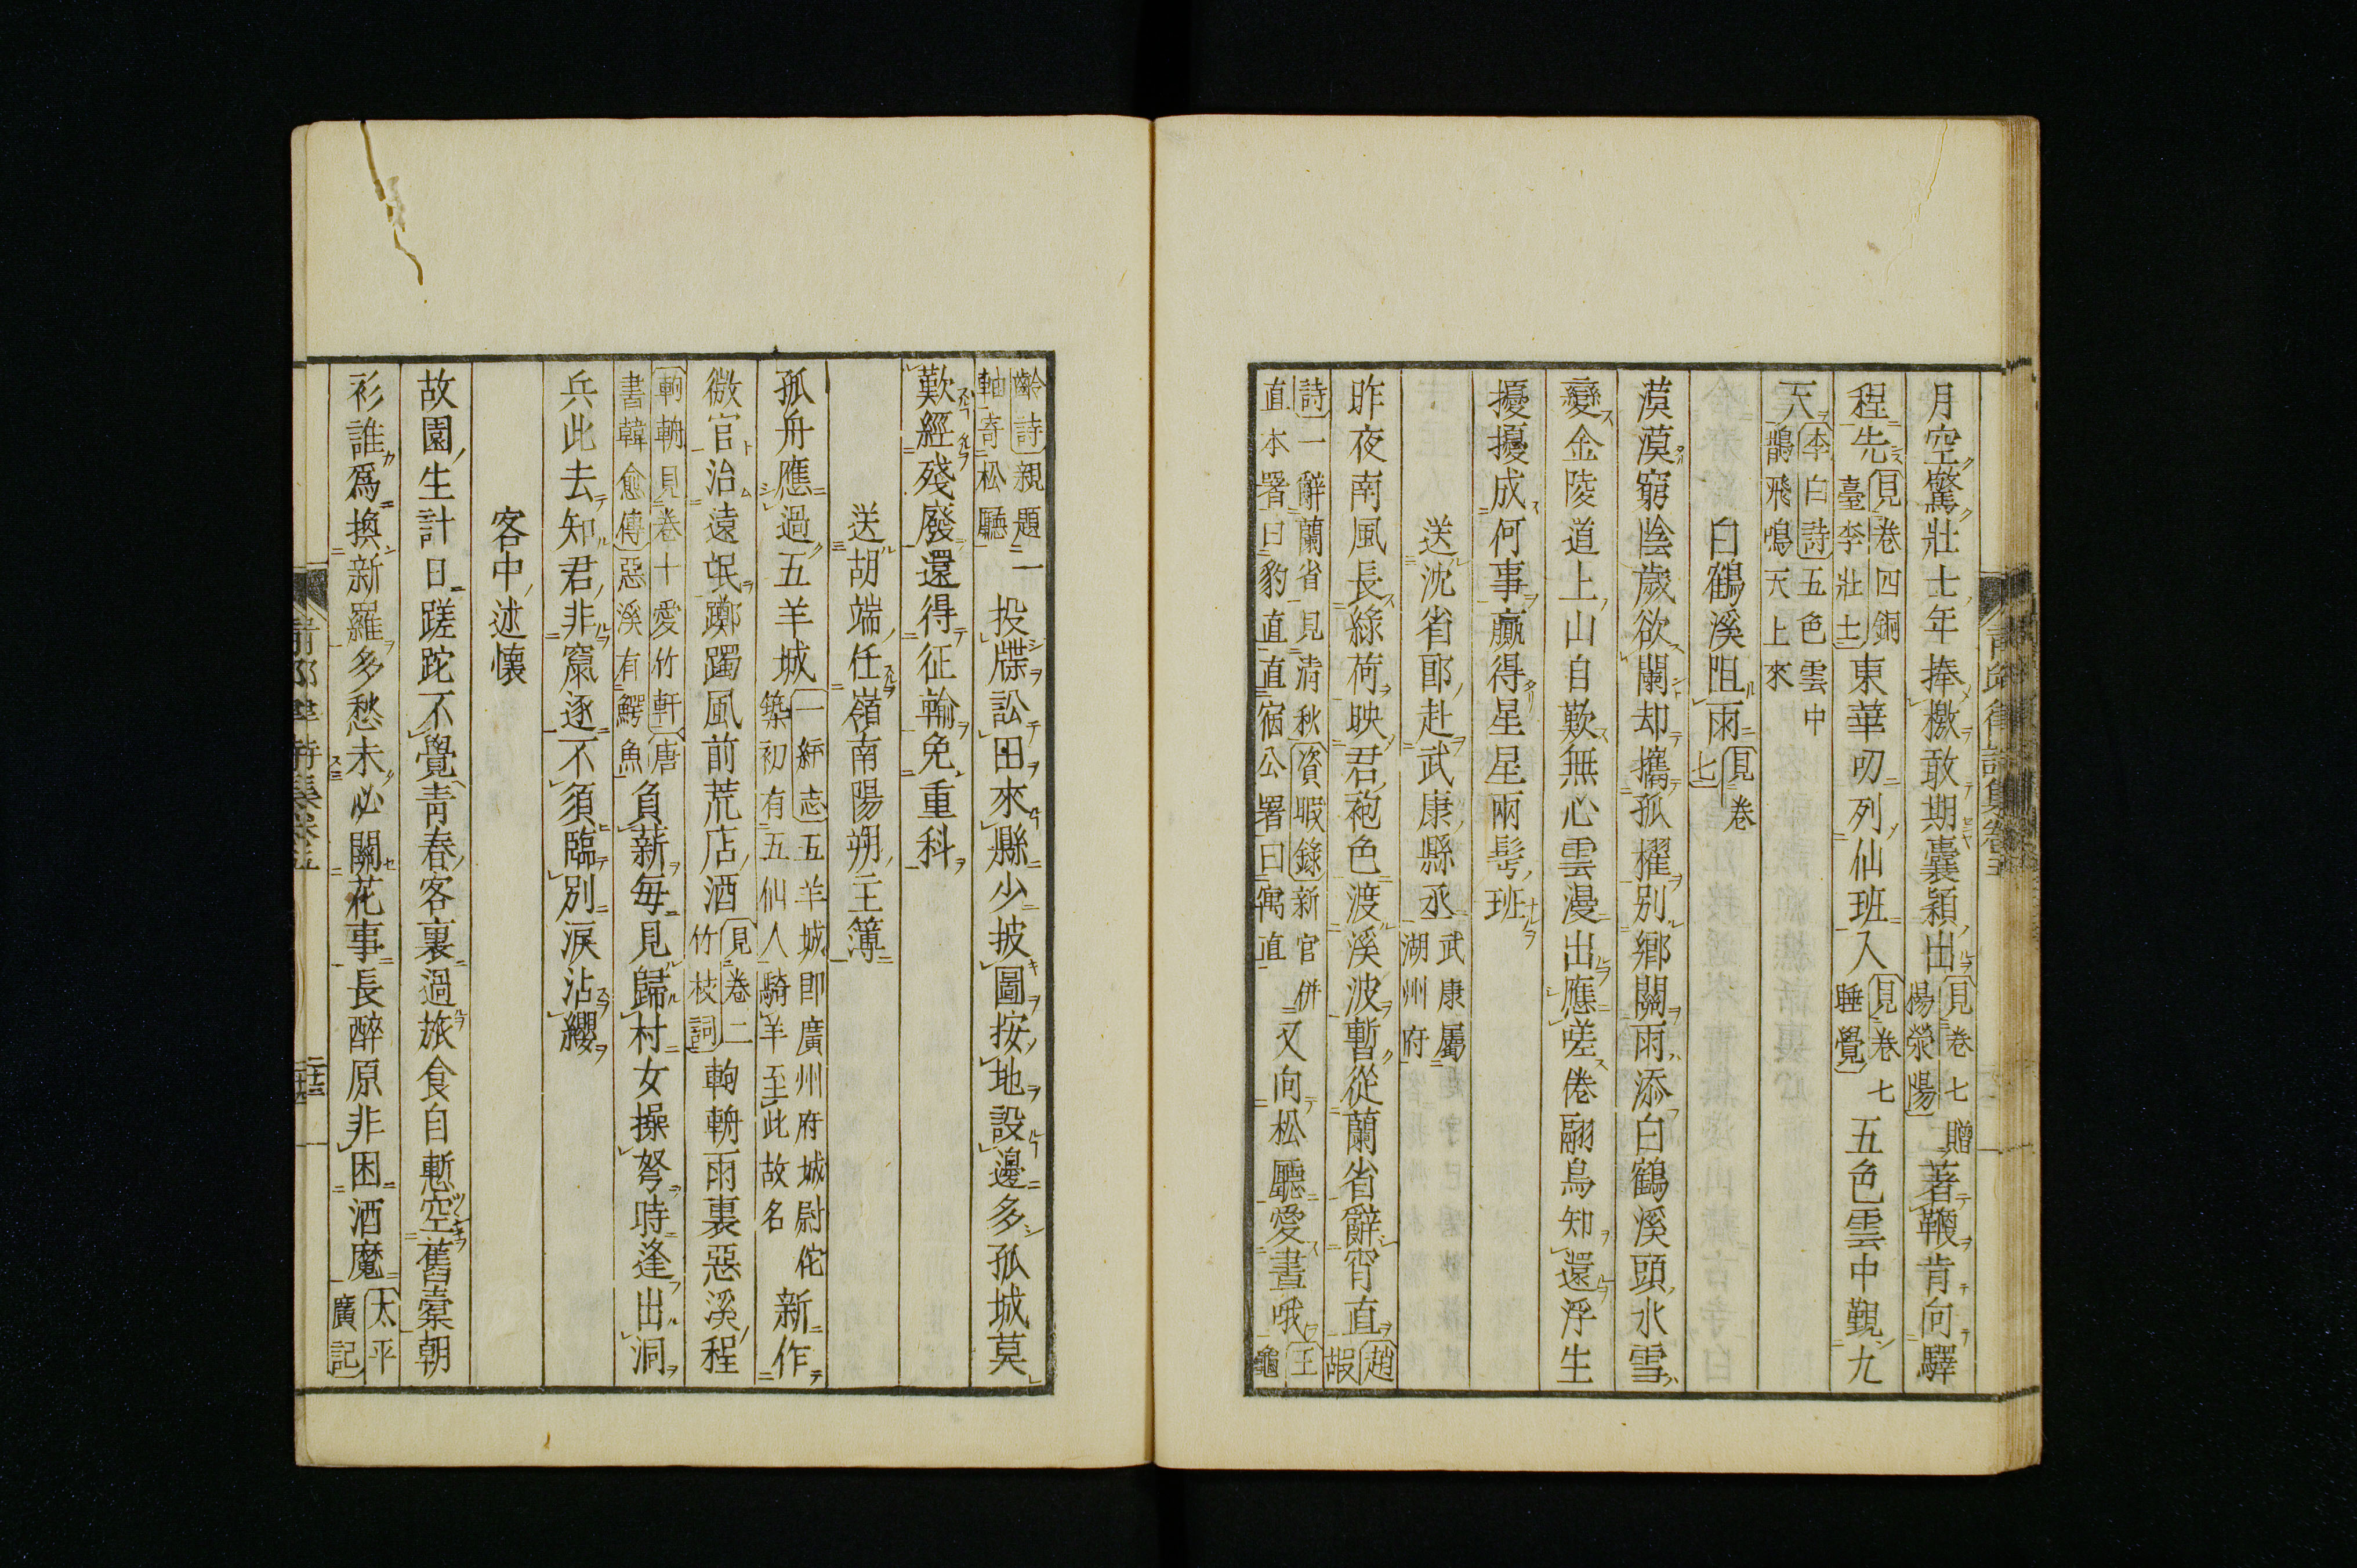 月空驚壯士年捧檄敢期囊穎出見卷七贈楊滎陽著鞭肯向驛
程先見卷四銅臺李壯士東華叨列仙班入見卷七睡覺五色雲中覲九
天李白詩五色雲中鵲飛鳴天上來
白鶴溪阻雨見卷七
漠漠窮陰歲欲闌却攜孤櫂別鄉關雨添白鶴溪頭水雪
變金陵道上山自歎無心雲漫出應嗟倦翮鳥知還浮生
擾擾成何事贏得星星兩髩班
送沈省郎赴武康縣丞武康屬湖州府
昨夜南風長綠荷映君袍色渡溪波暫從蘭省辭宵直趙嘏
詩一辭蘭省見淸秋資暇錄新官併直本署曰豹直直宿公署曰寓直又向松廳愛晝哦王龜
齡詩親題一軸寄松廳投牒訟田來縣少披圖按地設邊多孤城莫
歎經殘廢還得征輸免重科
送胡端任嶺南陽朔主簿
孤舟應過五羊城一綂志五羊城即廣州府城尉佗築初有五仙人騎羊至此故名新作
微官治遠氓躑躅風前荒店酒見卷二竹枝詞輷輈雨裏惡溪程
輷輈見卷十愛竹軒唐書韓愈傳惡溪有鰐魚負薪每見歸村女操弩時逢出洞
兵此去知君非竄逐不須臨別淚沾纓
客中述懷
故園生計日蹉跎不覺靑春客裏過旅食自慙空舊橐朝
衫誰爲換新羅多愁未必關花事長醉原非困酒魔太平廣記
靑邱律詩集卷五